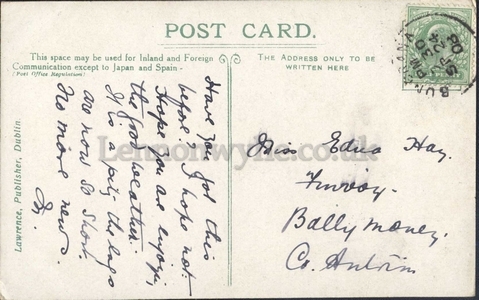 POST CARD.
This space may be used for Inland and Foreign
Communication except to Japan and Spain -
(Post Office Regulation)
THE ADDRESS ONLY TO BE
WRITTEN HERE
BUNCRANA
Have you got this
before? I hope not.
Hope you are enjoying
the good weather.
It is a pity the days
are now so short.
No more news.
Miss Edna Hay.
Ballymoney.
Co. Antrim
Lawrence, Publisher, Dublin.
Lennonwylie.co.uk